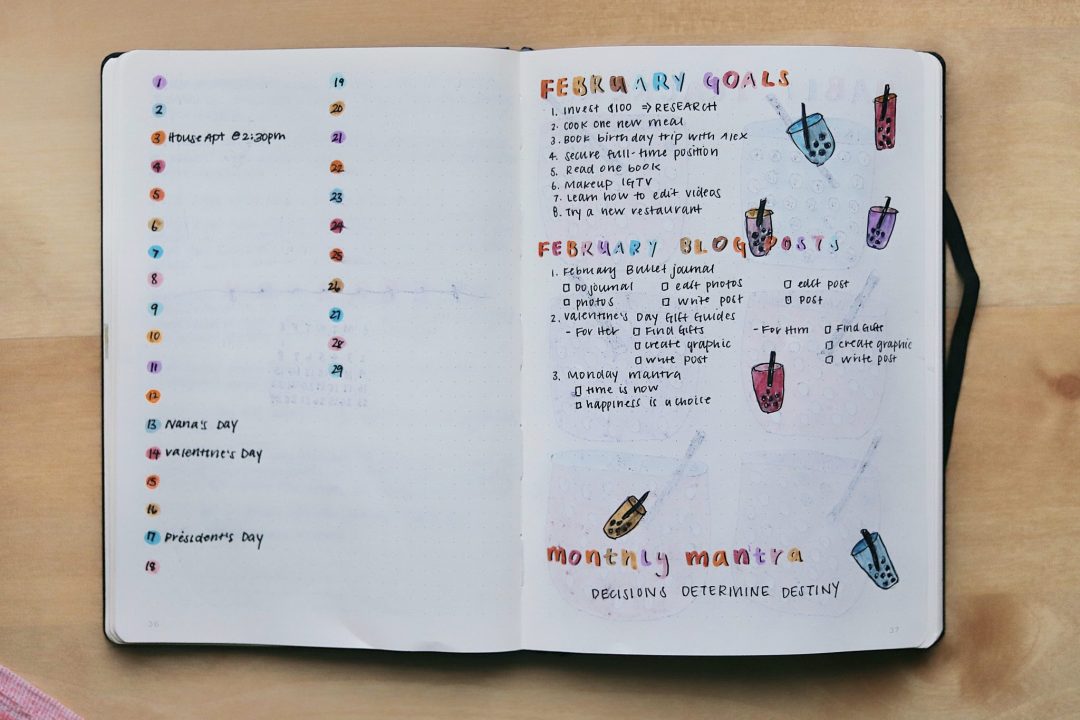 1
2
3 House Apt @ 2:30pm
4
5
6
7
8
9
10
11
12
13 Nana's Day
14 Valentine's Day
15
16
17 President's Day
18
36
19
20
21
22
23
24
25
26
27
28
29
FEBRUARY GOALS
1. Invest $100 => RESEARCH
2. COOK one new meal
3. BOOK birthday trip with Alex
4. Secure full-time position
5. Read one book
6. Makeup IGTV
7. Learn how to edit videos
8. Try a new restaurant
FEBRUARY BLOG POSTS
1. February Bullet journal
□ DO journal □ edit photos □ edit post
□ photos □ write post □ post
2. Valentine's Day Gift Guides
- For Her □ Find Gifts - For Him □ Find Gifts
□ create graphic □ create graphic
□ write post □ write post
3. Monday mantra
□ time is now
□ happiness is a choice
monthly mantra
DECISIONS DETERMINE DESTINY
37